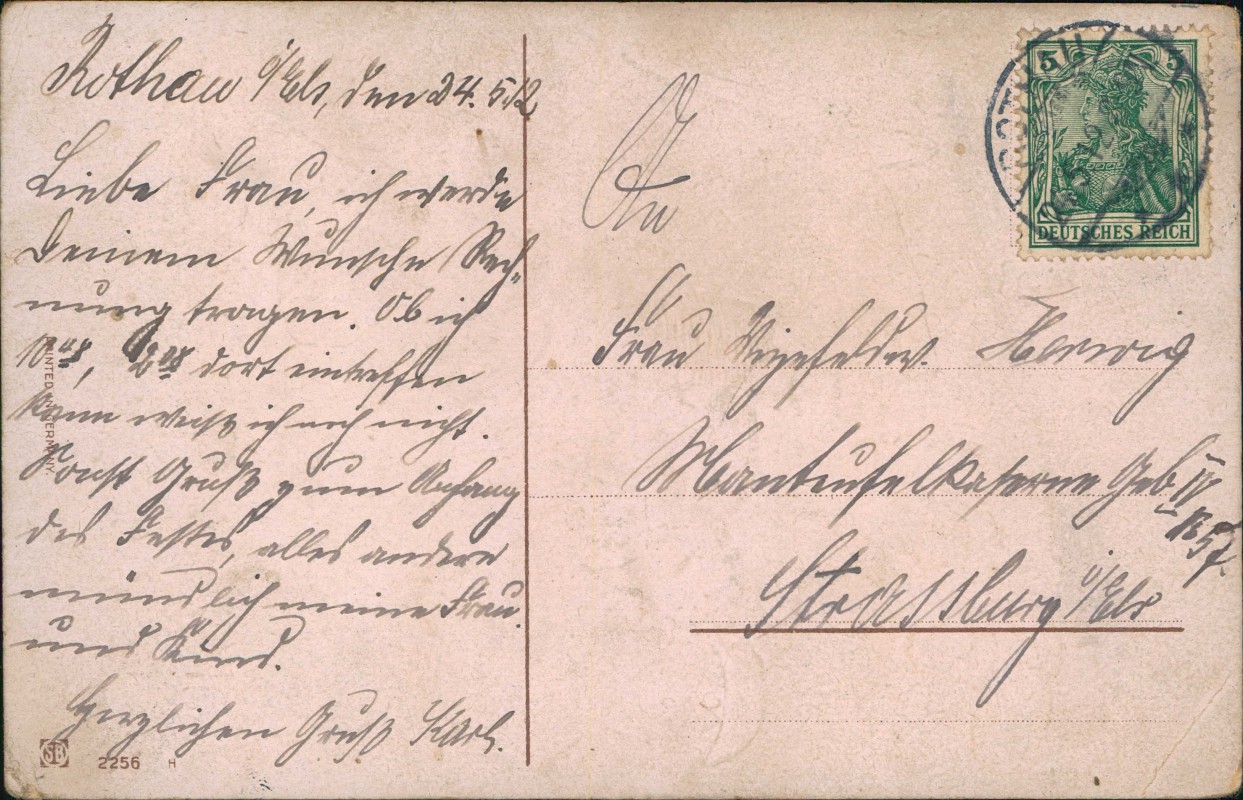 Rothau i/Els, den 24. 5. 12
Liebe Frau, ich werde
Deinem Wunsche Rech-
nung tragen. Ob ich
dort eintreffen
kann weiß ich noch nicht.
Sonst Gruß zum Anfang
des Festes, alles andere
mündlich meine Frau
und Kind.
Herzlichen Gruß Karl.
PRINTED IN GERMANY
SB
2256 H
5 5
DEUTSCHES REICH
An
Frau Vizefeldw. Herwig
Manteufelkaserne Geb IV
No 57.
Strassburg i/Els